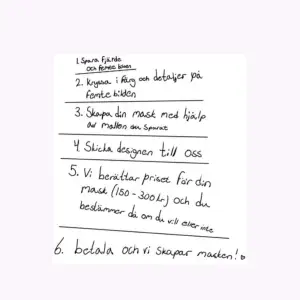 1. Spara fjärde
och femte bilden
2. Kryssa i färg och detaljer på
femte bilden
3. Skapa din mask med hjälp
av mallen du sparat
4. Skicka designen till oss
5. Vi berättar priset för din
mask (150-300kr) och du
bestämmer då om du vill eller inte
6. betala och vi skapar masken!